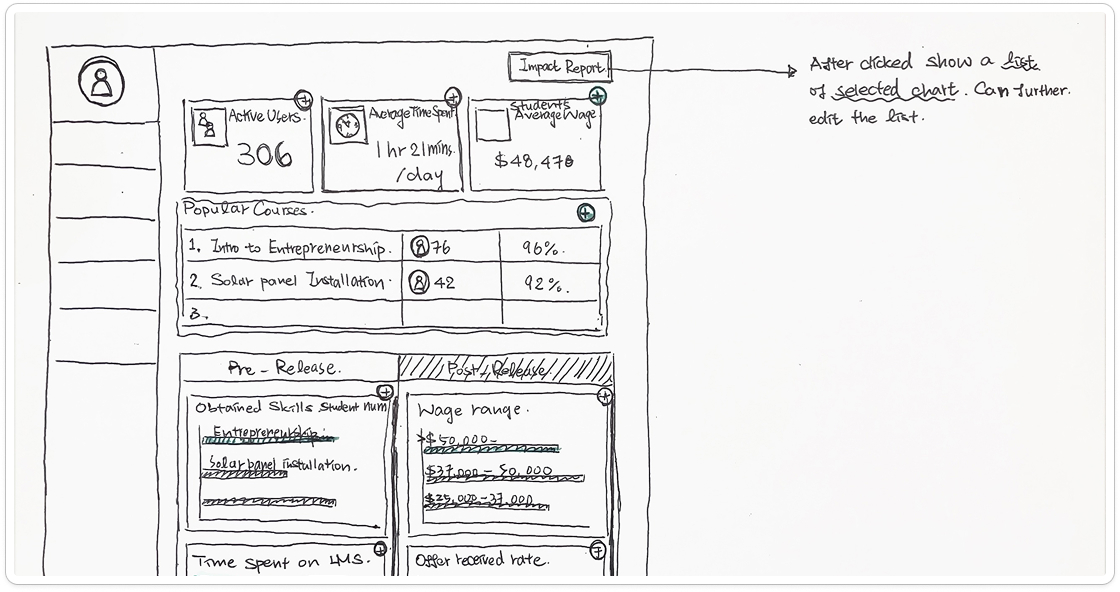 Impact Report
After clicked show a list
of selected chart. Can further
edit the list.
Active Users.
306
Average Time Spent
1 hr 21 mins.
/day
Students
Average Wage
$48,478
Popular Courses.
1. Intro to Entrepreneurship. 76 96%.
2. Solar panel Installation. 42 92%.
3.
Pre - Release.
Post - Release.
Obtained Skills Student num
Entrepreneurship.
Solar panel installation.
Wage range.
>$50,000-
$37,000 - 50,000
$25,000 - 37,000
Time spent on LMS.
Offer received rate.